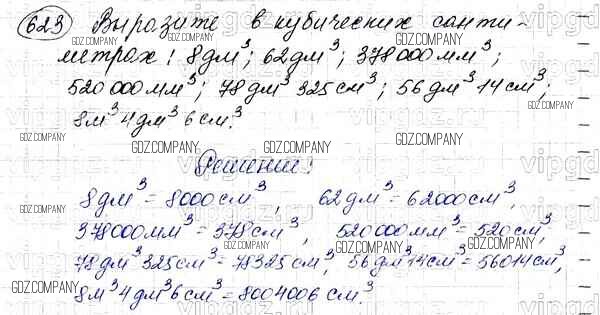 623 Выразите в кубических санти-
метрах: 8дм³; 62дм³; 378000мм³;
520000мм³; 78дм³ 325см³; 56дм³ 14см³;
8м³ 4дм³ 6см³.
Решение:
8дм³ = 8000см³, 62дм³ = 62000см³,
378000мм³ = 378см³, 520000мм³ = 520см³,
78дм³ 325см³ = 78325см³, 56дм³ 14см³ = 56014см³,
8м³ 4дм³ 6см³ = 8004006 см³.
GDZ.COMPANY
vipgdz